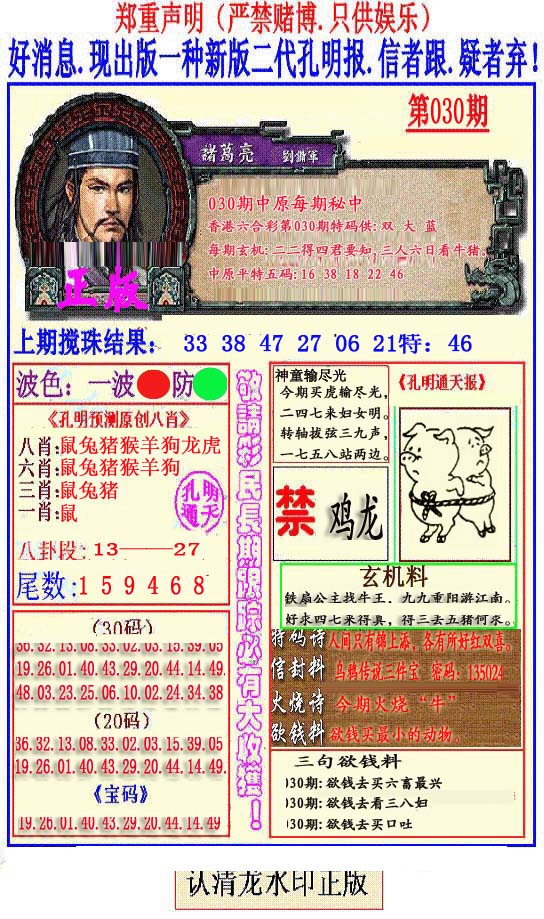 郑重声明（严禁赌博.只供娱乐）
好消息.现出版一种新版二代孔明报.信者跟.疑者弃!
第030期
諸葛亮 劉備軍
030期中原每期秘中
香港六合彩第030期特码供: 双 大 蓝
每期玄机: 二二得四君要知, 三人六日看牛猪。
中原平特五码: 16 38 18 22 46
正版
上期搅珠结果： 33 38 47 27 06 21特：46
波色：一波 防
《孔明预测原创八肖》
八肖:鼠兔猪猴羊狗龙虎
六肖:鼠兔猪猴羊狗
三肖:鼠兔猪
一肖:鼠
孔明通天
八卦段: 13——27
尾数:159468
(30码)
36.32.13.08.33.02.03.15.39.05
19.26.01.40.43.29.20.44.14.49
48.03.23.25.06.10.02.24.34.38
(20码)
36.32.13.08.33.02.03.15.39.05
19.26.01.40.43.29.20.44.14.49
《宝码》
19.26.01.40.43.29.20.44.14.49
敬請彩民長期跟踪必有大收獲！
神童输尽光
今期买虎输尽光,
二四七来妇女明。
转轴拔弦三九声,
一七五八站两边。
《孔明通天报》
禁 鸡龙
玄机料
铁扇公主找牛王, 九九重阳游江南。
好求四七来得真, 得三去五猪何求。
特码诗 人间只有锦上添, 各有所好红双喜。
信封料 乌鸦传说三件宝 密码: 135024
火烧诗 今期火烧“牛”
欲钱料 欲钱买最小的动物。
三句欲钱料
030期: 欲钱去买六畜最兴
030期: 欲钱去看三八妇
030期: 欲钱去买口吐
认清龙水印正版